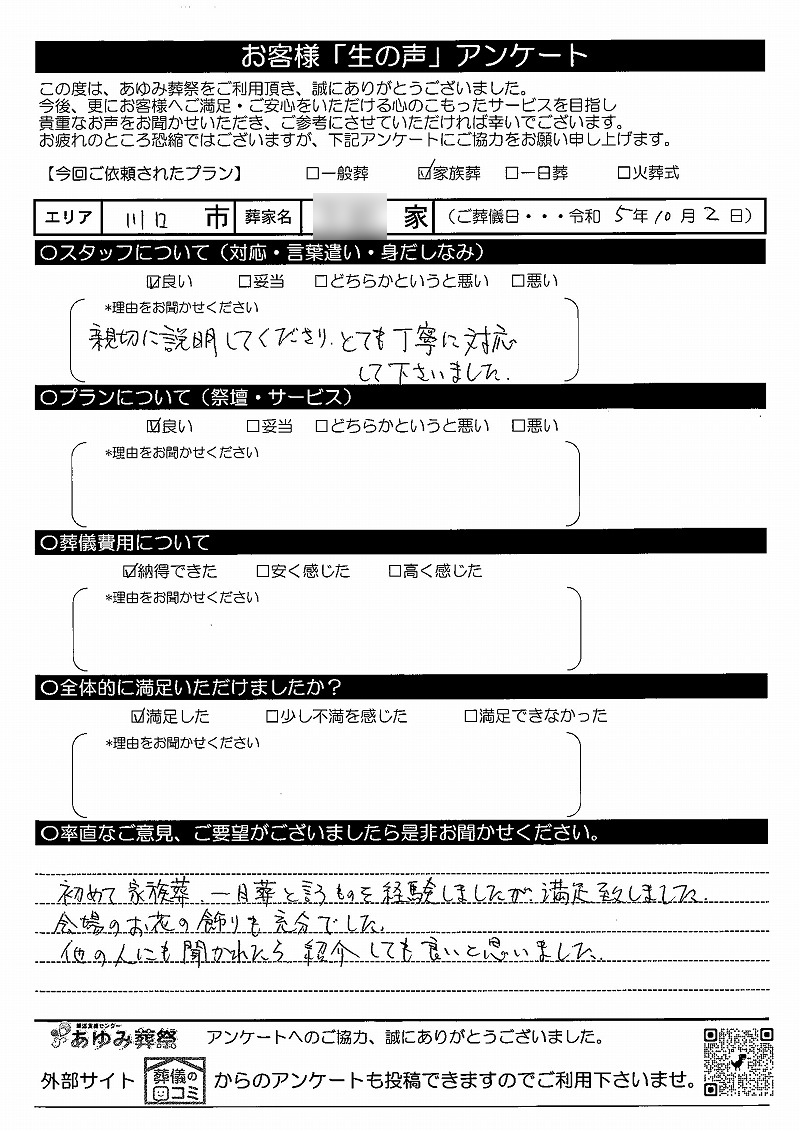 お客様「生の声」アンケート
この度は、あゆみ葬祭をご利用頂き、誠にありがとうございました。
今後、更にお客様へご満足・ご安心をいただける心のこもったサービスを目指し
貴重なお声をお聞かせいただき、ご参考にさせていただければ幸いでございます。
お疲れのところ恐縮ではございますが、下記アンケートにご協力をお願い申し上げます。
【今回ご依頼されたプラン】 □一般葬 ☑家族葬 □一日葬 □火葬式
エリア 川口 市 葬家名 家 (ご葬儀日・・・令和 5年10月2日)
○スタッフについて(対応・言葉遣い・身だしなみ)
☑良い □妥当 □どちらかというと悪い □悪い
*理由をお聞かせください
親切に説明してくださり、とても丁寧に対応
して下さいました.
○プランについて(祭壇・サービス)
☑良い □妥当 □どちらかというと悪い □悪い
*理由をお聞かせください
○葬儀費用について
☑納得できた □安く感じた □高く感じた
*理由をお聞かせください
○全体的に満足いただけましたか?
☑満足した □少し不満を感じた □満足できなかった
*理由をお聞かせください
○率直なご意見、ご要望がございましたら是非お聞かせください。
初めて家族葬、一日葬と言うものを経験しましたが、満足致しました.
会場のお花の飾りも充分でした.
他の人にも聞かれたら紹介しても良いと思いました.
あゆみ葬祭 アンケートへのご協力、誠にありがとうございました。
外部サイト 葬儀の口コミ からのアンケートも投稿できますのでご利用下さいませ。